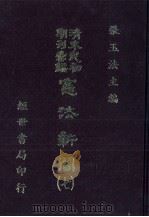 張玉法主編
清末民初
期刊彙編
憲法新
經世書局印行